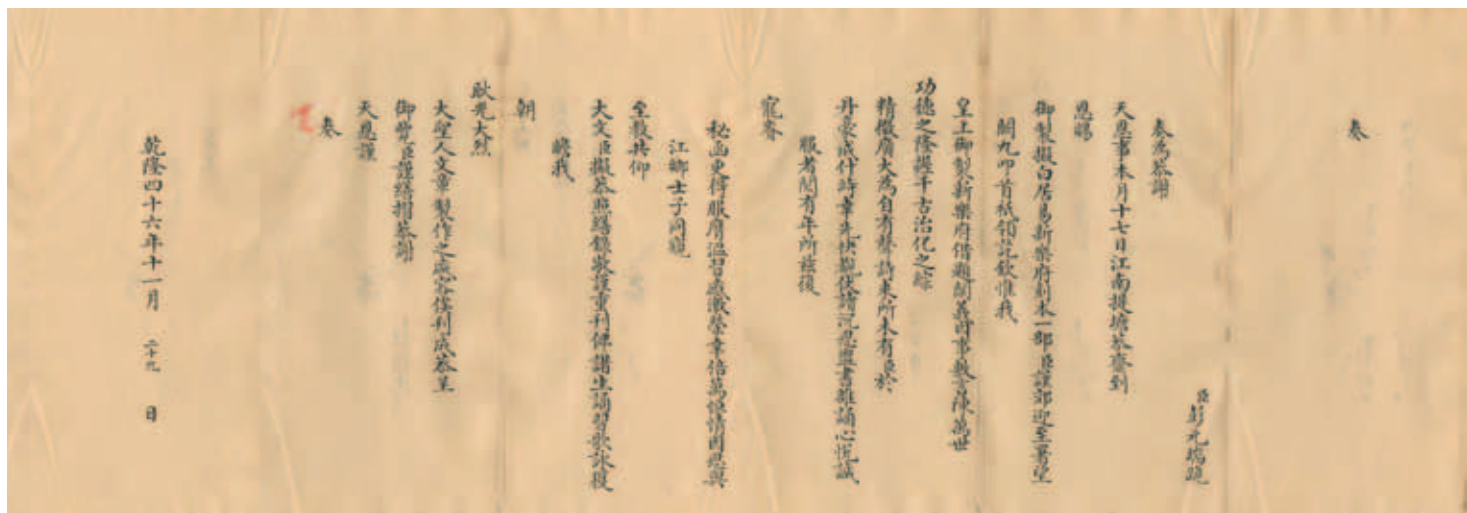 奏
臣彭元瑞跪
奏為恭謝
天恩事本月十七日江南提塘恭齎到
恩賜
御製擬白居易新樂府刻本一部臣謹郊迎至署望
闕九叩首祗領訖欽惟我
皇上御製新樂府借題闡義因事敷言陳萬世
功德之隆握千古治化之綜
精微廣大為自有聲詩來所未有臣於
丹豪成什時幸先快覩伏讀
服者閱有年所茲復
寵沓
秘函更得服膺溫習感激榮幸倍萬恆情因思與
江鄉士子同覩
至教共仰
大文臣擬恭照繕錄裝謹重刊俾譜生誦習歌詠復
瞻我
朝
耿光大烈
大聖人文章製作之盛容俟刊成恭呈
御覽臣謹繕摺恭謝
天恩謹
奏
乾隆四十六年十一月 二十九 日